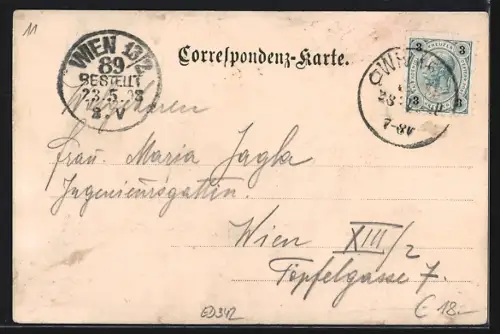 11
WIEN 13/2
89
BESTELLT
23.5.98
8.V
Correspondenz-Karte.
3 KREUZER 3
3 3
7-8V
Wohlgeboren
Frau Maria Jagla
Ingenieursgattin.
Wien XIII/2
Töpfelgasse 7.
ED342
€ 18.-